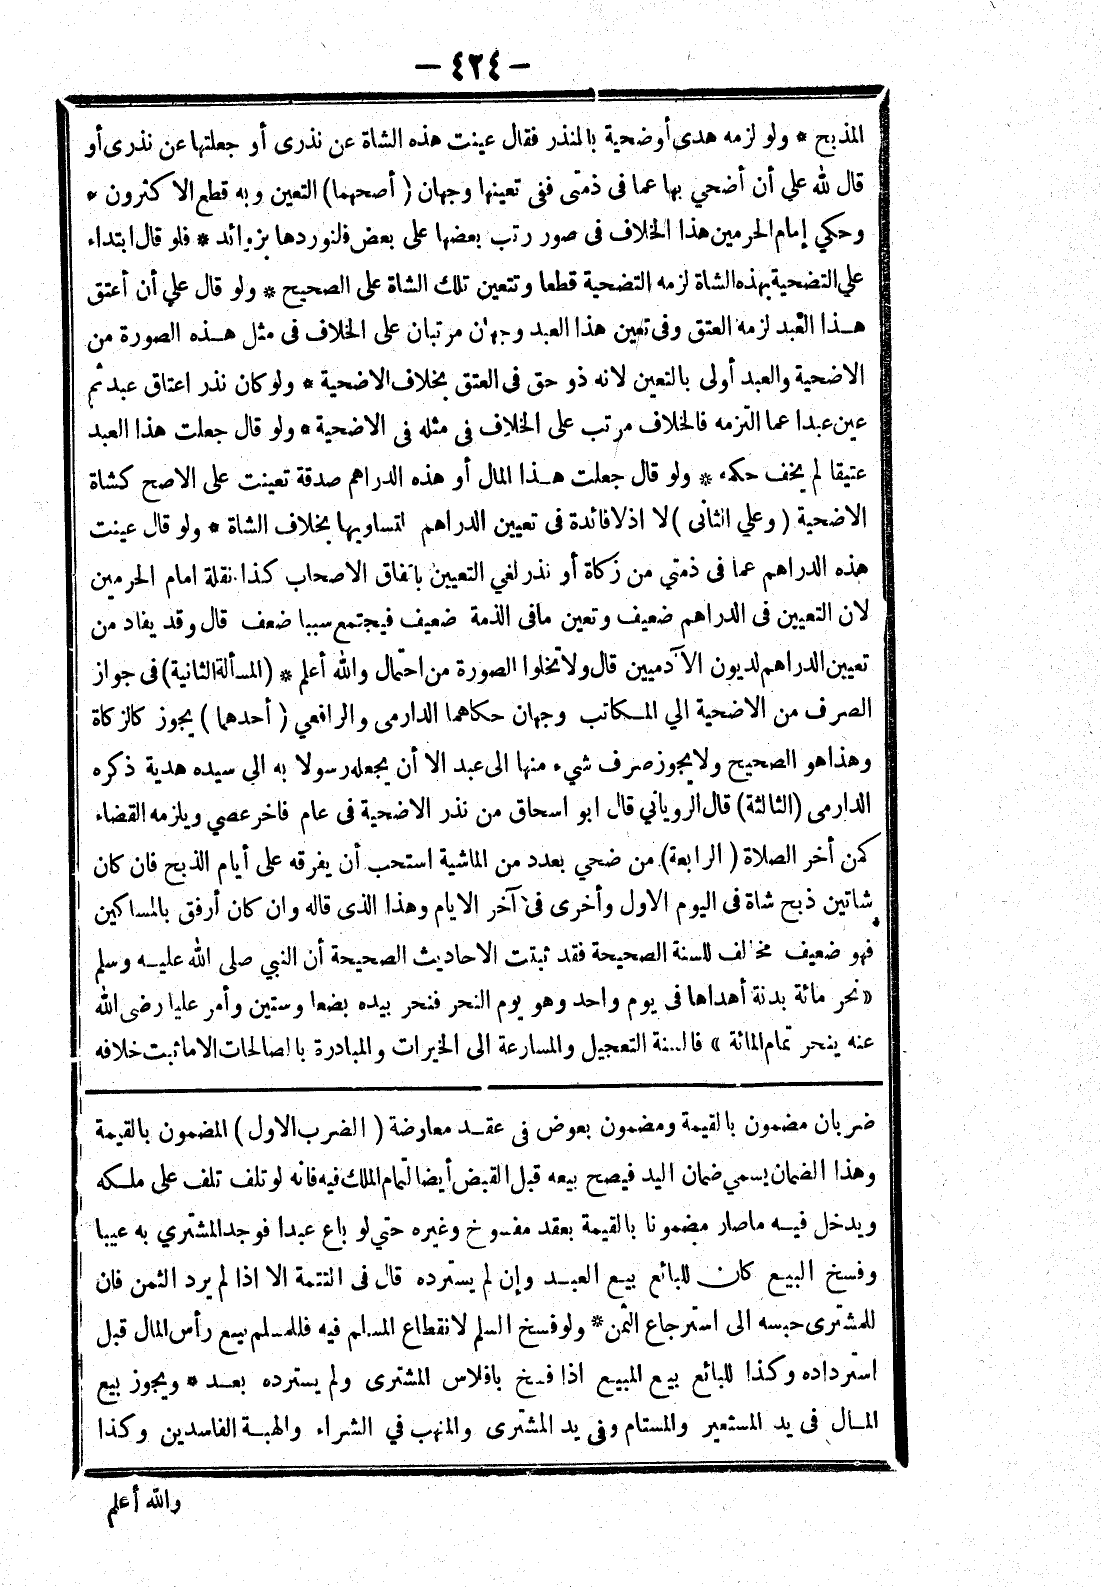 — ٤٢٤ —
المذبح * ولو لزمه هدى أو ضحية بالمنذر فقال عينت هذه الشاة عن نذرى أو جعلتها عن نذرى أو
قال لله علي أن أضحي بها عما فى ذمتى ففى تعينها وجهان ( أصحهما) التعين وبه قطع الاكثرون *
وحكي إمام الحرمين هذا الخلاف فى صور رتب بعضها على بعض فلنوردها بزوائد * فلو قال ابتداء
علي التضحية بهذه الشاة لزمه التضحية قطعا وتتعين تلك الشاة على الصحيح * ولو قال علي أن أعتق
هـذا العبد لزمه العتق وفى تعين هذا العبد وجهان مرتبان على الخلاف فى مثل هـذه الصورة من
الاضحية والعبد أولى بالتعين لانه ذو حق فى العتق بخلاف الاضحية * ولو كان نذر اعتاق عبد ثم
عين عبدا عما التزمه فالخلاف مرتب على الخلاف في مثله فى الاضحية * ولو قال جعلت هذا العبد
عتيقا لم يخف حكمه * ولو قال جعلت هـذا المال أو هذه الدراهم صدقة تعينت على الاصح كشاة
الاضحية ( وعلي الثانى ) لا اذلا فائدة فى تعيين الدراهم لتساويها بخلاف الشاة * ولو قال عينت
هذه الدراهم عما فى ذمتي من زكاة أو نذر لغي التعيين باتفاق الاصحاب كذا نقلة امام الحرمين
لان التعيين فى الدراهم ضعيف وتعين مافى الذمة ضعيف فيجتمع سببا ضعف قال وقد يفاد من
تعيين الدراهم لديون الآدميين قال ولا تخلوا الصورة من احتمال والله أعلم * (المسألة الثانية) فى جواز
الصرف من الاضحية الي المكاتب وجهان حكاهما الدارمى والرافعي ( أحدهما ) يجوز كالزكاة
وهذا هو الصحيح ولا يجوز صرف شيء منها الى عبد الا أن يجعله رسولا به الي سيده هدية ذكره
الدارمى (الثالثة) قال الروياني قال ابو اسحاق من نذر الاضحية فى عام فاخر عصي ويلزمه القضاء
كمن أخر الصلاة ( الرابعة) من ضحي بعدد من الماشية استحب أن يفرقه على أيام الذبح فان كان
شاتين ذبح شاة فى اليوم الاول وأخرى فى آخر الايام وهذا الذى قاله وان كان أرفق بالمساكين
فهو ضعيف مخالف للسنة الصحيحة فقد ثبتت الاحاديث الصحيحة أن النبي صلى الله عليـه وسلم
« نحر مائة بدنة أهداها فى يوم واحد وهو يوم النحر فنحر بيده بضعا وستين وأمر عليا رضى الله
عنه ينحر تمام المائة » فالسنة التعجيل والمسارعة الى الخيرات والمبادرة بالصالحات الاما ثبت خلافه
ضربان مضمون بالقيمة ومضمون بعوض فى عقـد معارضة ( الضرب الاول ) المضمون بالقيمة
وهذا الضمان يسمي ضمان اليد فيصح بيعه قبل القبض أيضا لتمام الملك فيه فانه لو تلف تلف على ملـكه
ويدخل فيـه ماصار مضمونا بالقيمة بعقد مفسوخ وغيره حتي لو باع عبدا فوجد المشتري به عيبا
وفسخ البيع كان للبائع بيع العبـد وإن لم يسترده قال فى التتمة الا اذا لم يرد الثمن فان
للمشترى حبسه الى استرجاع الثمن * ولو فسخ السلم لانقطاع المسلم فيه فللمسلم بيع رأس المال قبل
استرداده وكذا للبائع بيع المبيع اذا فسخ بافلاس المشترى ولم يسترده بعـد * ويجوز بيع
المـال فى يد المستعير والمستام وفى يد المشترى والمتهب في الشراء والهبـة الفاسدين وكذا
والله أعلم